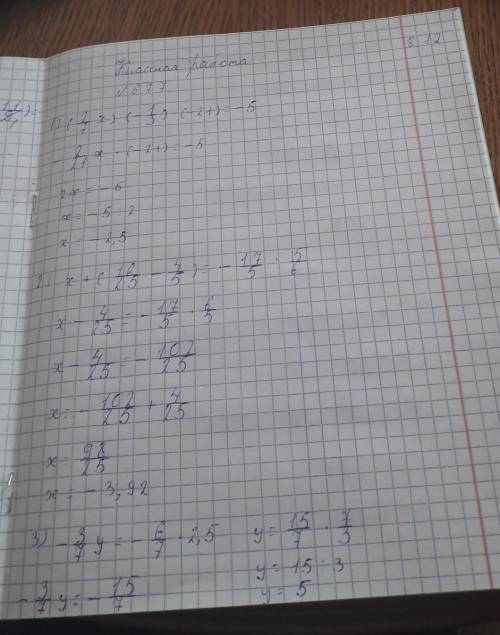 8.12
Классная работа
№ 677
1) (2/7 x) · (-1/3) · (-21) = -5
- 2/21 x · (-21) = -5
2x = -5
x = -5 : 2
x = -2,5
2) x + (16/25 - 4/5) = - 17/5 : 5/6
x - 4/25 = - 17/5 · 6/5
x - 4/25 = - 102/25
x = - 102/25 + 4/25
x = 92/25
x = - 3,92
3) - 3/7 y = - 6/7 · 2,5
- 3/7 y = - 15/7
y = 15/7 · 7/3
y = 15 : 3
y = 5